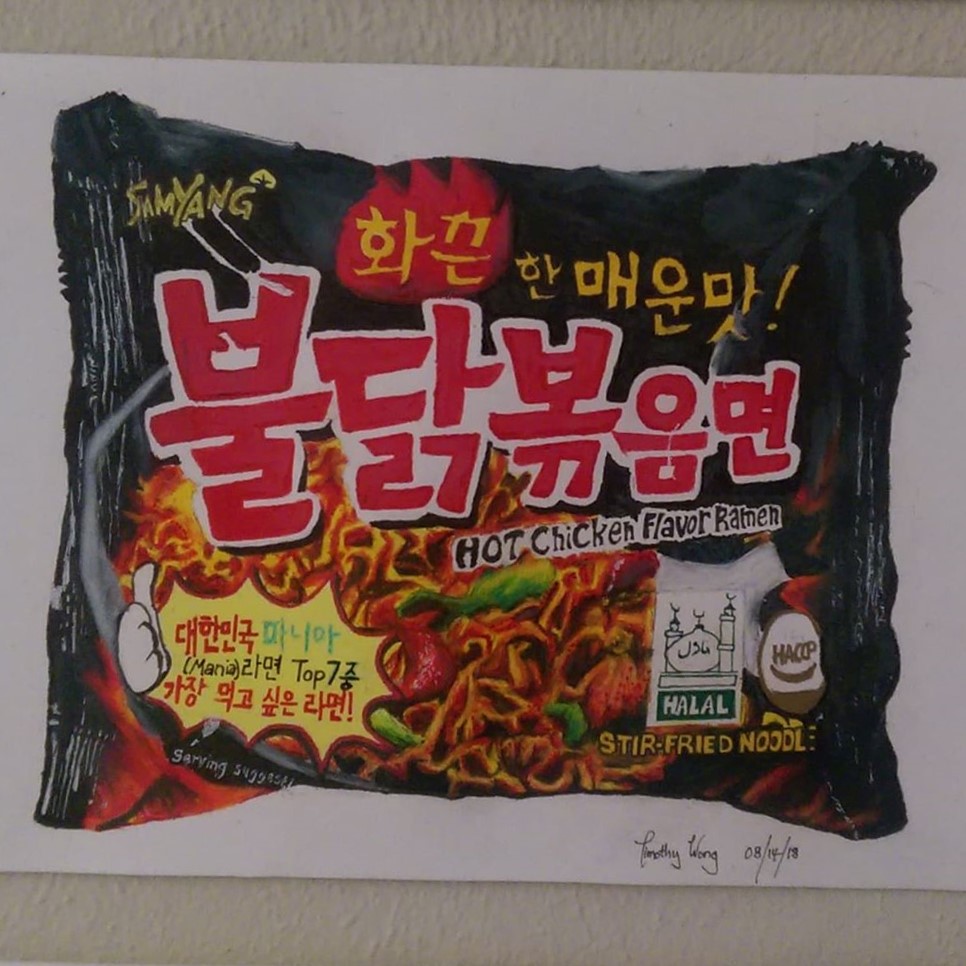 SAMYANG
화끈한 매운맛!
불닭볶음면
HOT Chicken Flavor Ramen
대한민국 마니아
(Mania)라면 Top7중
가장 먹고 싶은 라면!
HALAL
HACCP
STIR-FRIED NOODLE
serving suggesti
Timothy Wong 08/14/18